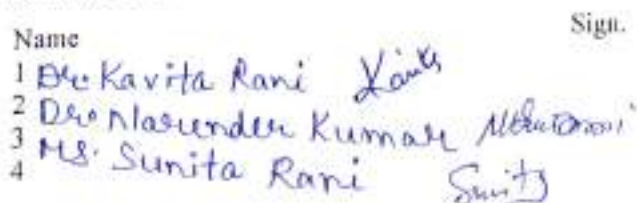 Name Sign.
1 Dr. Kavita Rani Kavita
2 Dr. Narender Kumar
3 Ms. Sunita Rani Sunita
4